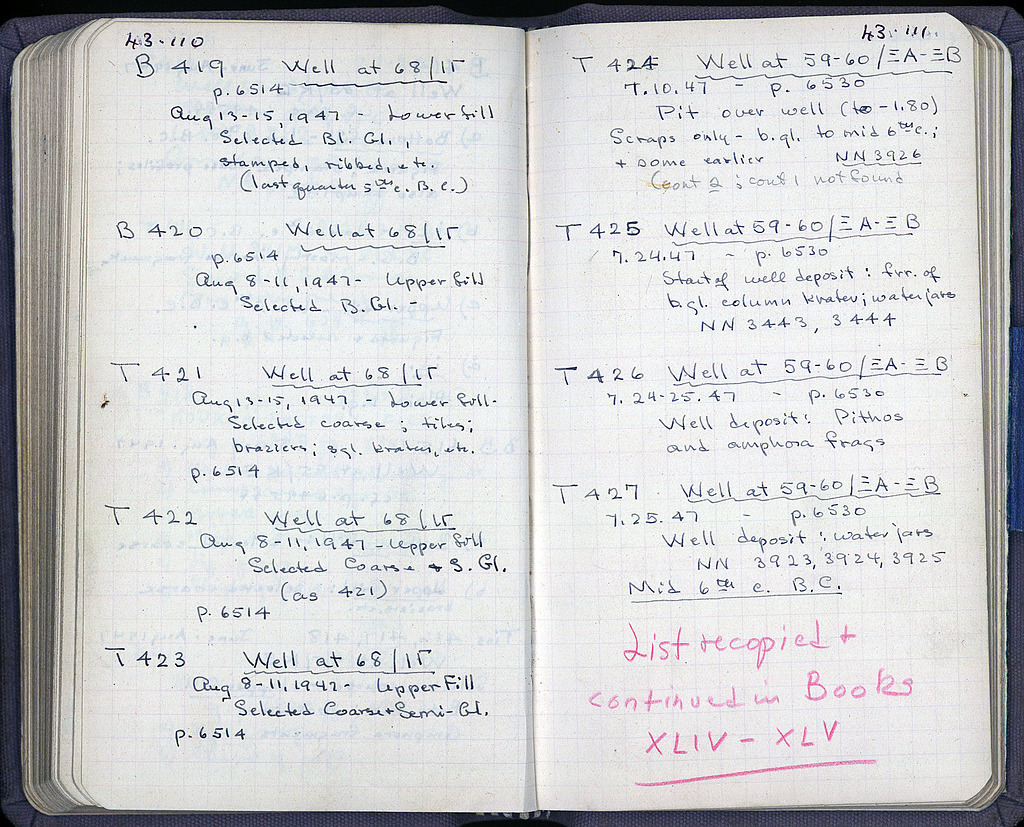 43-110
B 419 Well at 68/ΙΓ
p. 6514
Aug 13-15, 1947 - Lower fill
Selected Bl. Gl.,
stamped, ribbed, etc.
(last quarter 5th c. B.C.)
B 420 Well at 68/ΙΓ
p. 6514
Aug 8-11, 1947 - Upper fill
Selected B. Gl. -
T 421 Well at 68/ΙΓ
Aug 13-15, 1947 - Lower fill -
Selected coarse; tiles;
braziers; sgl. krater, etc.
p. 6514
T 422 Well at 68/ΙΓ
Aug 8-11, 1947 - Upper fill
Selected Coarse + S. Gl.
(as 421)
p. 6514
T 423 Well at 68/ΙΓ
Aug 8-11, 1947 - Upper Fill
Selected Coarse + Semi-Gl.
p. 6514
43-111
T 424 Well at 59-60/ΞA-ΞB
7.10.47 - p. 6530
Pit over well (to -1.80)
Scraps only - b.gl. to mid 6th c.;
+ some earlier NN 3926
(cont 2; cont 1 not found
T 425 Well at 59-60/ΞA-ΞB
7.24.47 - p. 6530
Start of well deposit: frr. of
b.gl. column krater; water jars
NN 3443, 3444
T 426 Well at 59-60/ΞA-ΞB
7.24-25.47 - p. 6530
Well deposit: Pithos
and amphora frags
T 427 Well at 59-60/ΞA-ΞB
7.25.47 - p. 6530
Well deposit: water jars
NN 3923, 3924, 3925
Mid 6th c. B.C.
List recopied +
continued in Books
XLIV - XLV